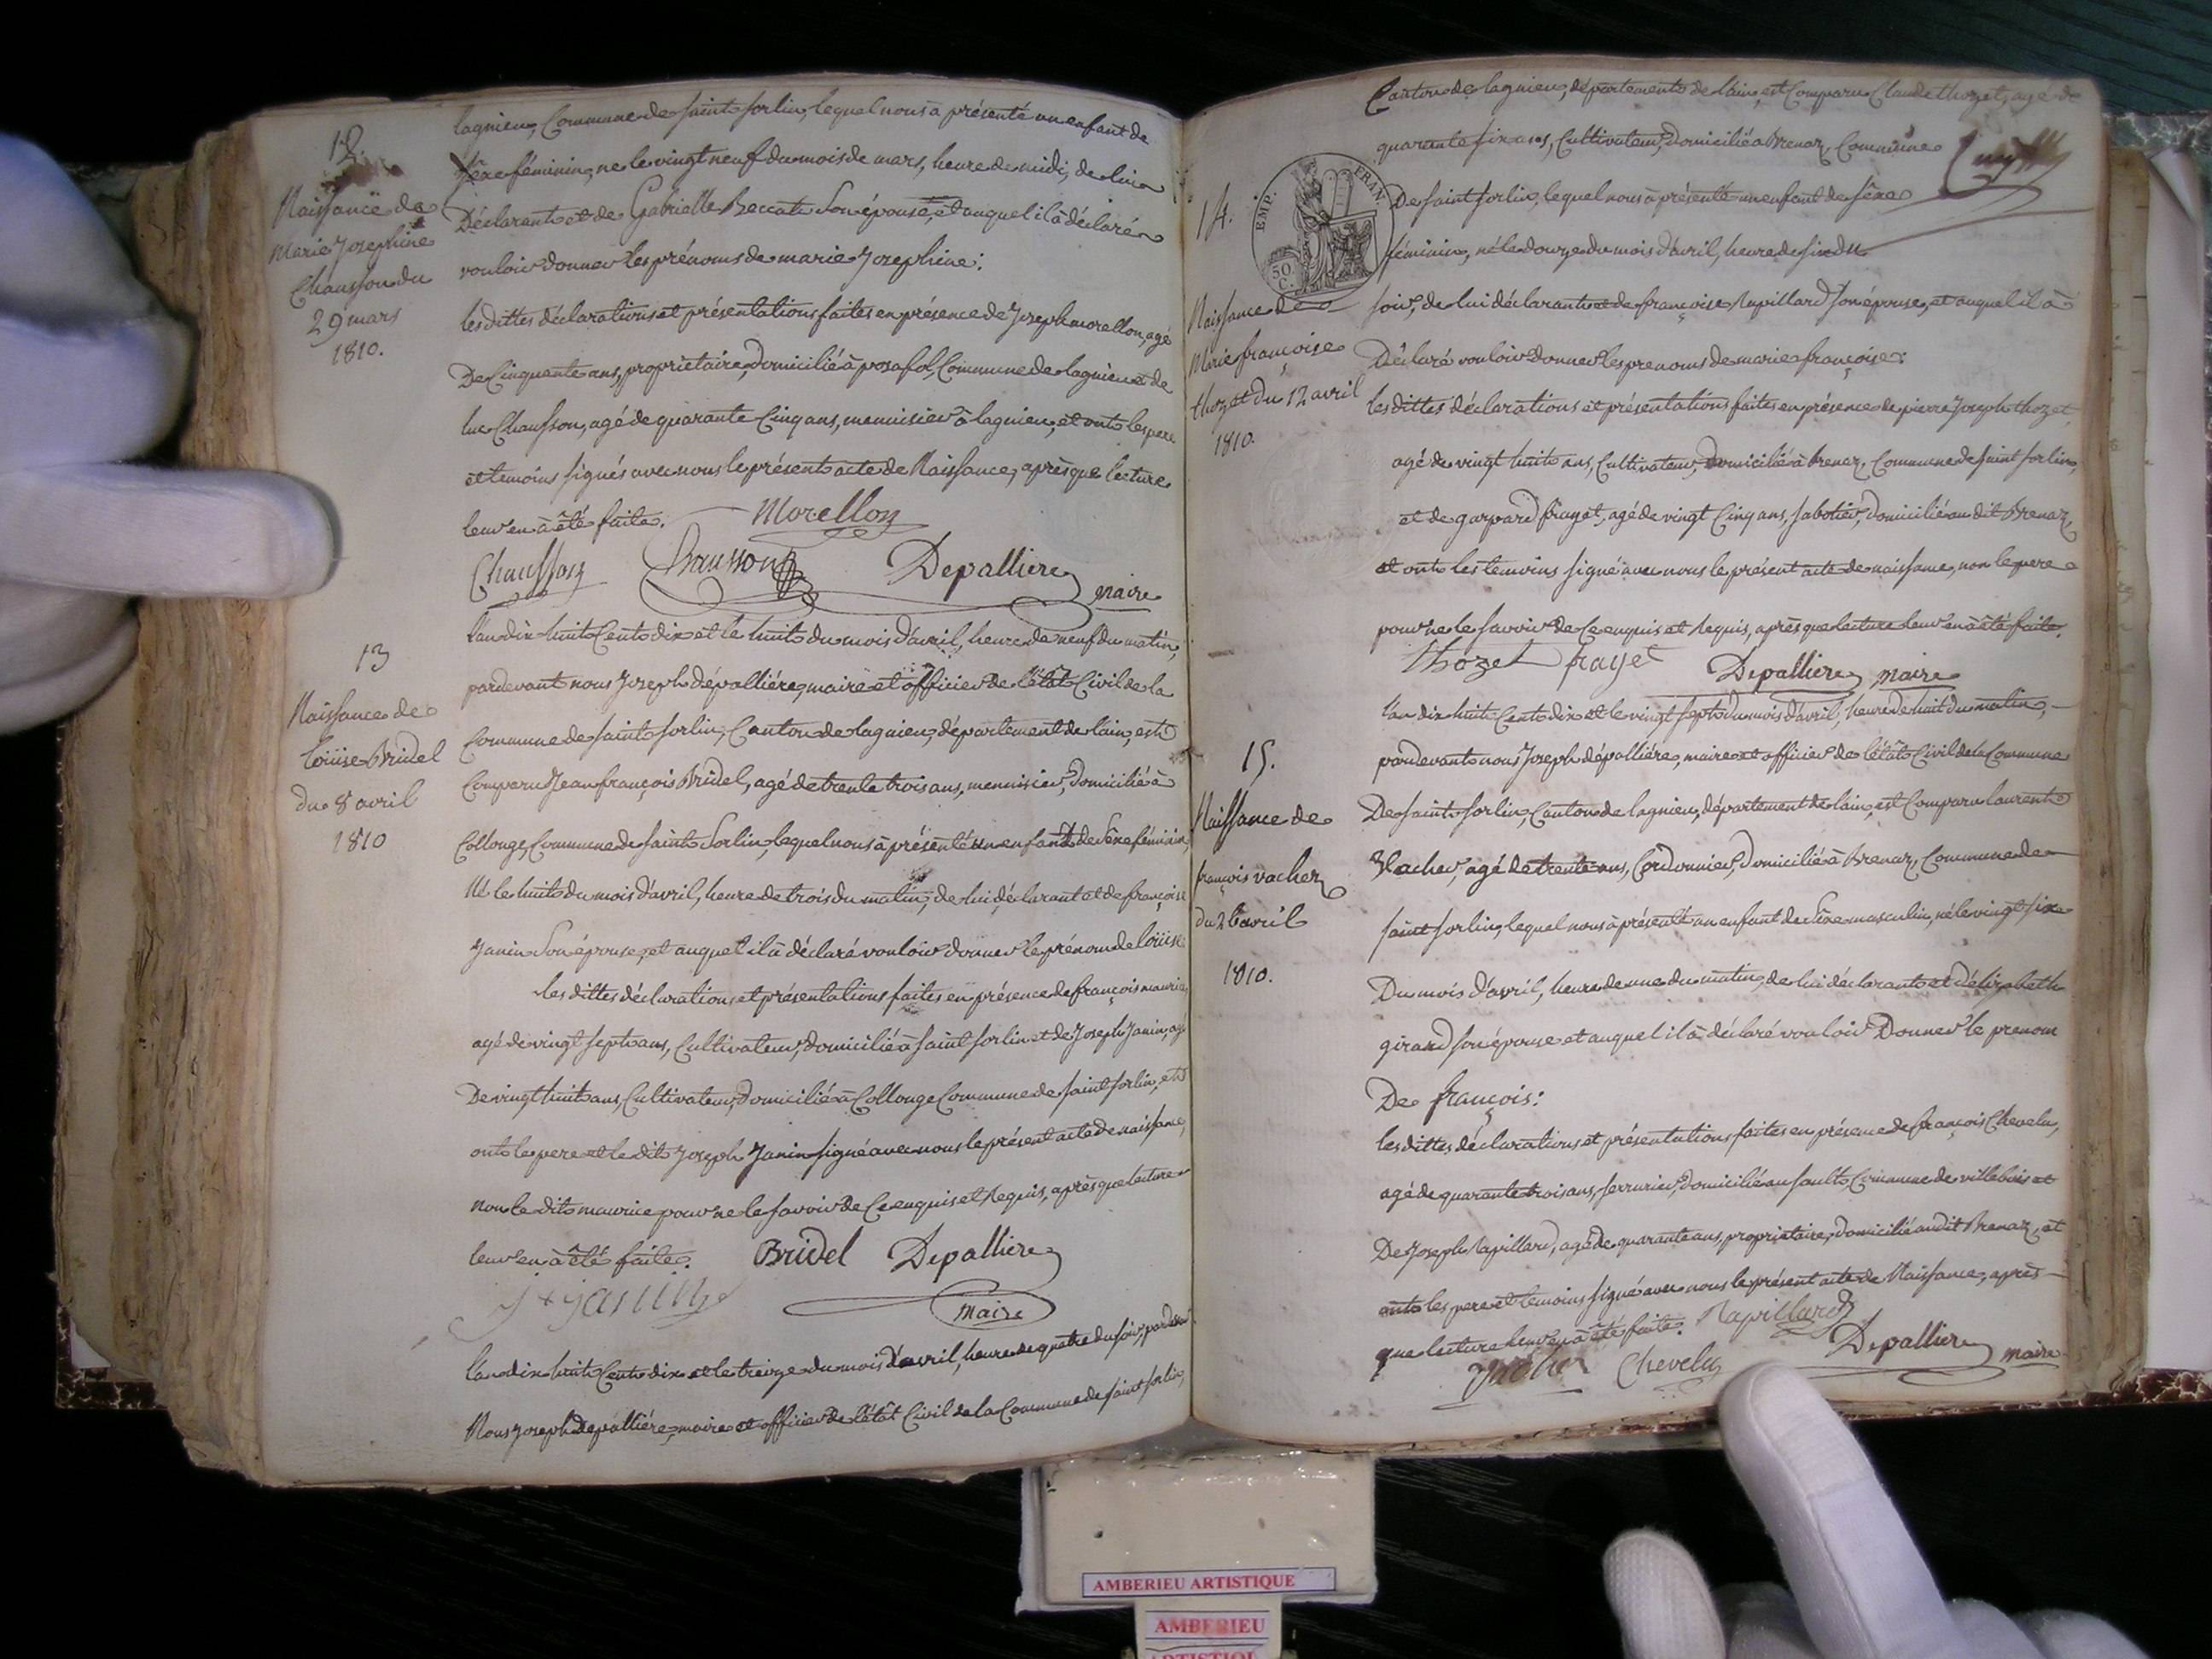 12.
Naissance de
Marie Josephine
Chausson du
29 mars
1810.
lagnieu, Commune de saint sorlin, lequel nous à présenté un enfant de
sêxe féminin, né le vingt neuf du mois de mars, heure de midi, de lui
Déclarant et de Gabrielle Son épouse, et auquel il à déclaré
vouloir donner les prénoms de marie Josephine:
les dittes déclarations et présentations faites en présence de Joseph morellon, agé
De Cinquante ans, propriétaire, domicilié à posafol, Commune de lagnieu et de
luc Chausson, agé de quarante Cinq ans, menuisier à lagnieu, et ont les pere
et temoins signés avec nous le présent acte de Naissance, après que lecture
leur en à êté faite. Morellon
Chausson Chausson Depalliere maire
13
Naissance de
loüise Bridel
du 8 avril
1810
l'an dix huit Cent dix et le huit du mois d'avril, heure de neuf du matin,
pardevant nous Joseph dépalliére, maire et officier de l'êtât Civil de la
Commune de saint sorlin, Canton de lagnieu, département de lain, est
Comparu Jean françois Bridel, agé de trente trois ans, menuisier, domicilié à
Collonge, Commune de saint Sorlin, lequel nous à présenté un enfant de Sêxe féminin,
Né le huit du mois d'avril, heure de trois du matin, de lui déclarant et de françoise
Janin Son épouse, et auquel il à déclaré vouloir donner le prénom de loüise
les dittes déclarations et présentations faites en présence de françois maurice
agé de vingt sept ans, Cultivateur, domicilié à saint sorlin et de Joseph Janin, agé
De vingt huit ans, Cultivateur, domicilié à Collonge Commune de saint sorlin, et
ont le pere et le dit Joseph Janin signé avec nous le présent acte de naissance,
non le dit maurice pour ne le savoir de Ce enquis et Requis, après que lecture
leur en à êté faite. Bridel Depalliere
Janin maire
l'an dix huit Cent dix et le treize du mois d'avril, heure de quatre du soir, pardevant
Nous Joseph Depalliére, maire et officier de l'êtât Civil de la Commune de saint sorlin,
Canton de lagnieu, département de lain, est Comparu Claude thozet, agé de
quarante six ans, Cultivateur, domicilié à Brenaz, Commune
14.
EMP. FRAN.
50 C.
De saint sorlin, lequel nous à présenté un enfant de sêxe
féminin, né le douze du mois d'avril, heure de six du
Naissance de
Marie françoise
thozet du 12 avril
1810.
soir, de lui déclarant et de françoise Rapillard son épouse, et auquel il à
Déclaré vouloir donner les prenoms de marie françoise:
les dittes déclarations et présentations faites en présence de pierre Joseph thozet,
agé de vingt huit ans, Cultivateur, domicilié à Brenaz, Commune de saint sorlin,
et de gaspard frayet, agé de vingt Cinq ans, sabotier, domicilié au dit Brenaz,
et ont les temoins signé avec nous le présent acte de naissance, non le pere
pour ne le savoir de Ce enquis et Requis, après que lecture leur en à êté faite.
thozet frayet Depalliere maire
15.
Naissance de
françois vacher
du 26 avril
1810.
l'an dix huit Cent dix et le vingt sept du mois d'avril, heure de huit du matin,
pardevant nous Joseph dépalliére, maire et officier de l'êtât Civil de la Commune
De saint sorlin, Canton de lagnieu, département de lain, est Comparu laurent
Vacher, agé de trente ans, Cordonnier, domicilié à Brenaz, Commune de
saint sorlin, lequel nous à présenté un enfant de Sêxe masculin, né le vingt six
Du mois d'avril, heure de une du matin, de lui déclarant et d'élizabeth
girand son épouse et auquel il à déclaré vouloir Donner le prenom
De françois:
les dittes déclarations et présentations faites en présence de françois Chevelu,
agé de quarante trois ans, serrurier, domicilié au sault, Commune de villebois et
De Joseph Rapillard, agé de quarante ans, propriétaire, domicilié au dit Brenaz, et
ont les pere et temoins signé avec nous le présent acte de Naissance, après
que lecture leur en à êté faite. Rapillard
Vacher Chevelu Depalliere maire
AMBERIEU ARTISTIQUE
AMBERIEU
ARTISTIQUE